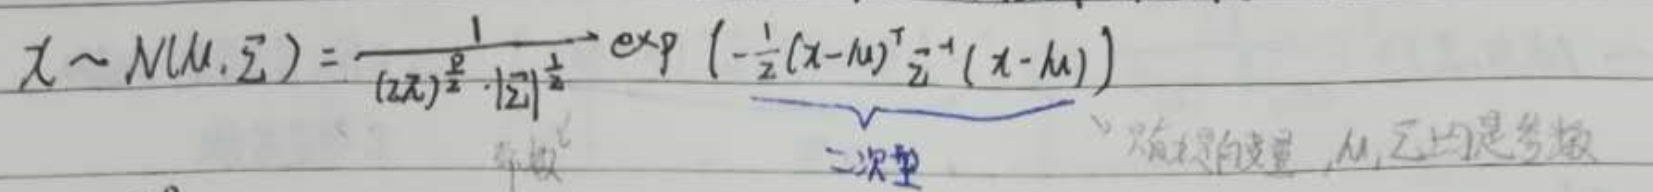 x ~ N(μ, Σ) = \frac{1}{(2π)^{\frac{p}{2}} · |Σ|^{\frac{1}{2}}} exp (-\frac{1}{2}(x-μ)^T Σ^{-1} (x-μ))
二次型
只有x是自变量, μ, Σ均是参数